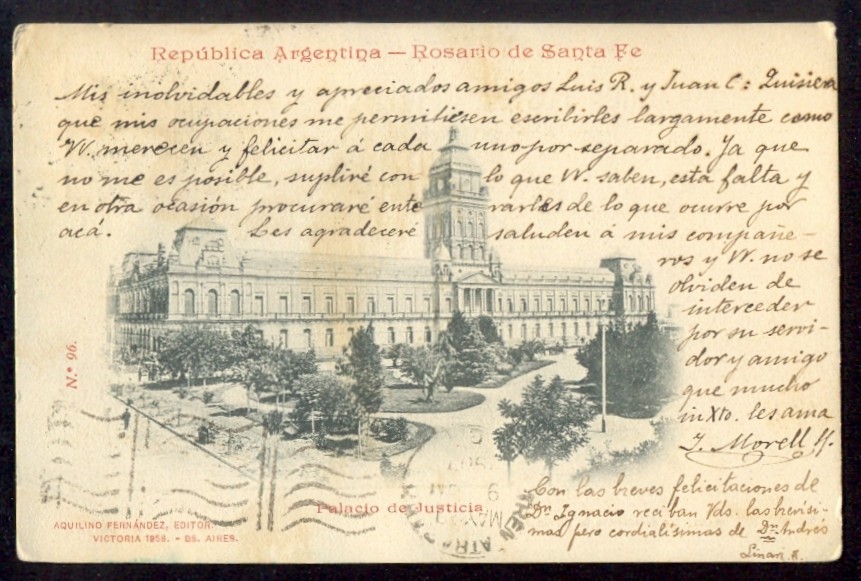 República Argentina — Rosario de Santa Fe
Mis inolvidables y apreciados amigos Luis R. y Juan C: Quisiera
que mis ocupaciones me permitiesen escribirles largamente como
VV. merecen y felicitar á cada uno por separado. Ya que
no me es posible, supliré con lo que VV. saben, esta falta y
en otra ocasión procuraré enterarles de lo que ocurre por
acá. Les agradeceré saluden á mis compañe-
ros y VV. no se
olviden de
interceder
por su servi-
dor y amigo
que mucho
in Xto. les ama
J. Morell
N.º 96.
Con las breves felicitaciones de
Dn Ignacio reciban Vds. las brevísi-
mas pero cordialísimas de Dn Andrés
Linari
Palacio de Justicia
AQUILINO FERNÁNDEZ, EDITOR.
VICTORIA 1958. - BS. AIRES.